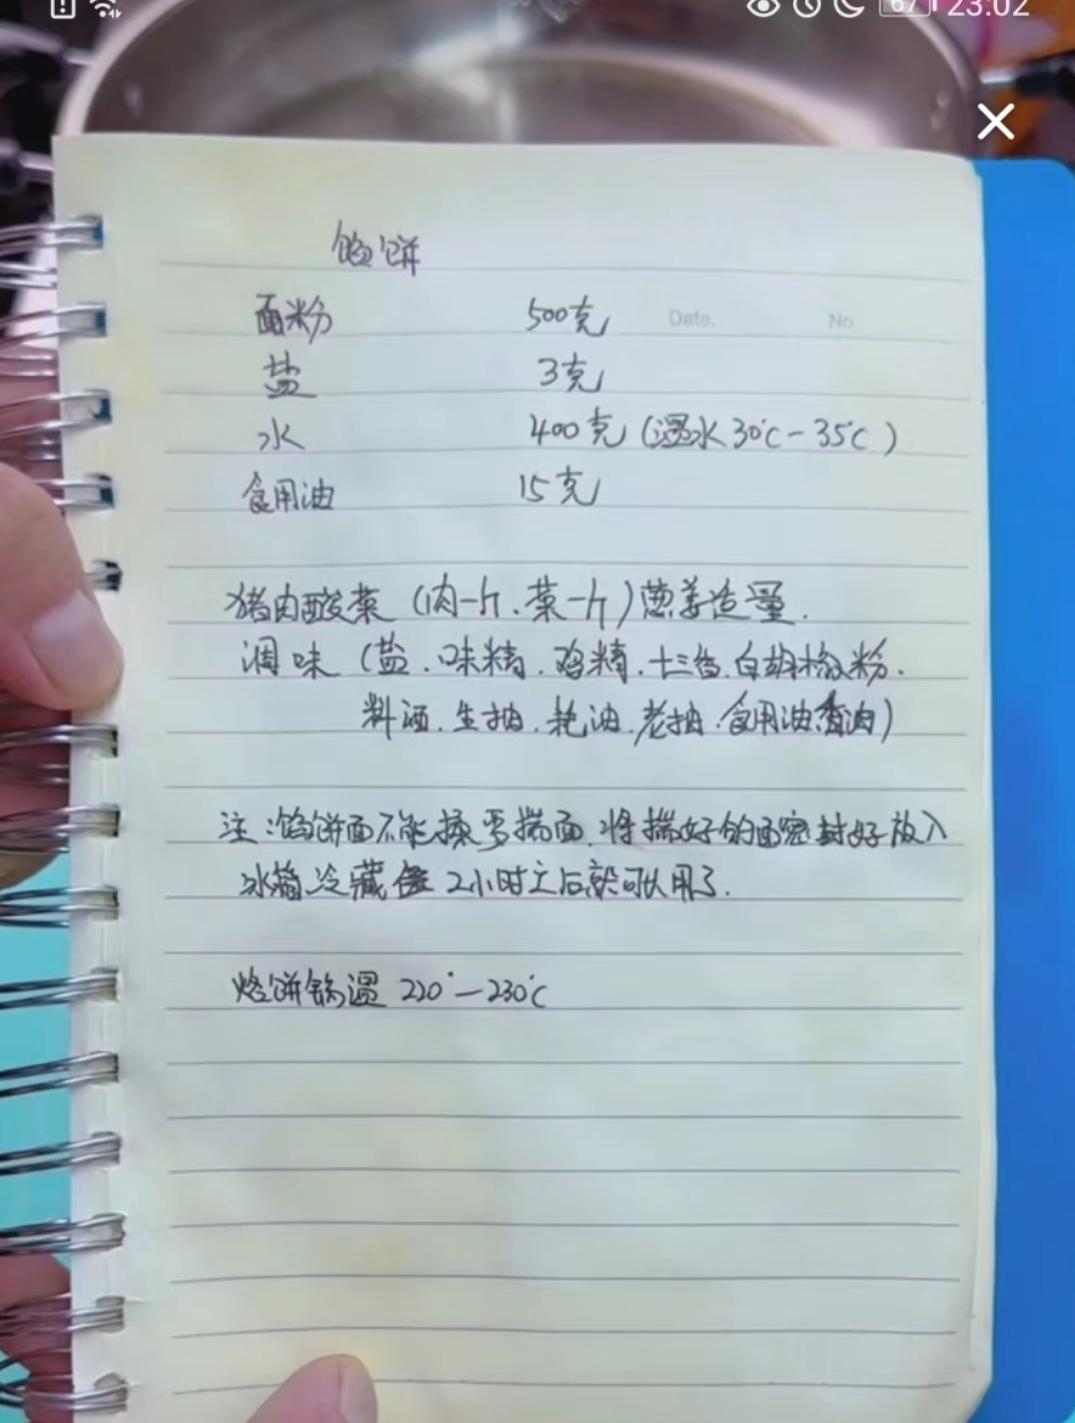 67 23:02
馅饼
Date. No
面粉 500克
盐 3克
水 400克 (温水30℃-35℃)
食用油 15克
猪肉酸菜 (肉一斤、菜一斤) 葱姜适量.
调味 (盐.味精.鸡精.十三香.白胡椒粉.
料酒.生抽.耗油.老抽.食用油香油)
注:馅饼面不能揉要揣面.将揣好的面密封好放入
冰箱冷藏 2小时之后就可以用了.
烙饼锅温 220°—230℃